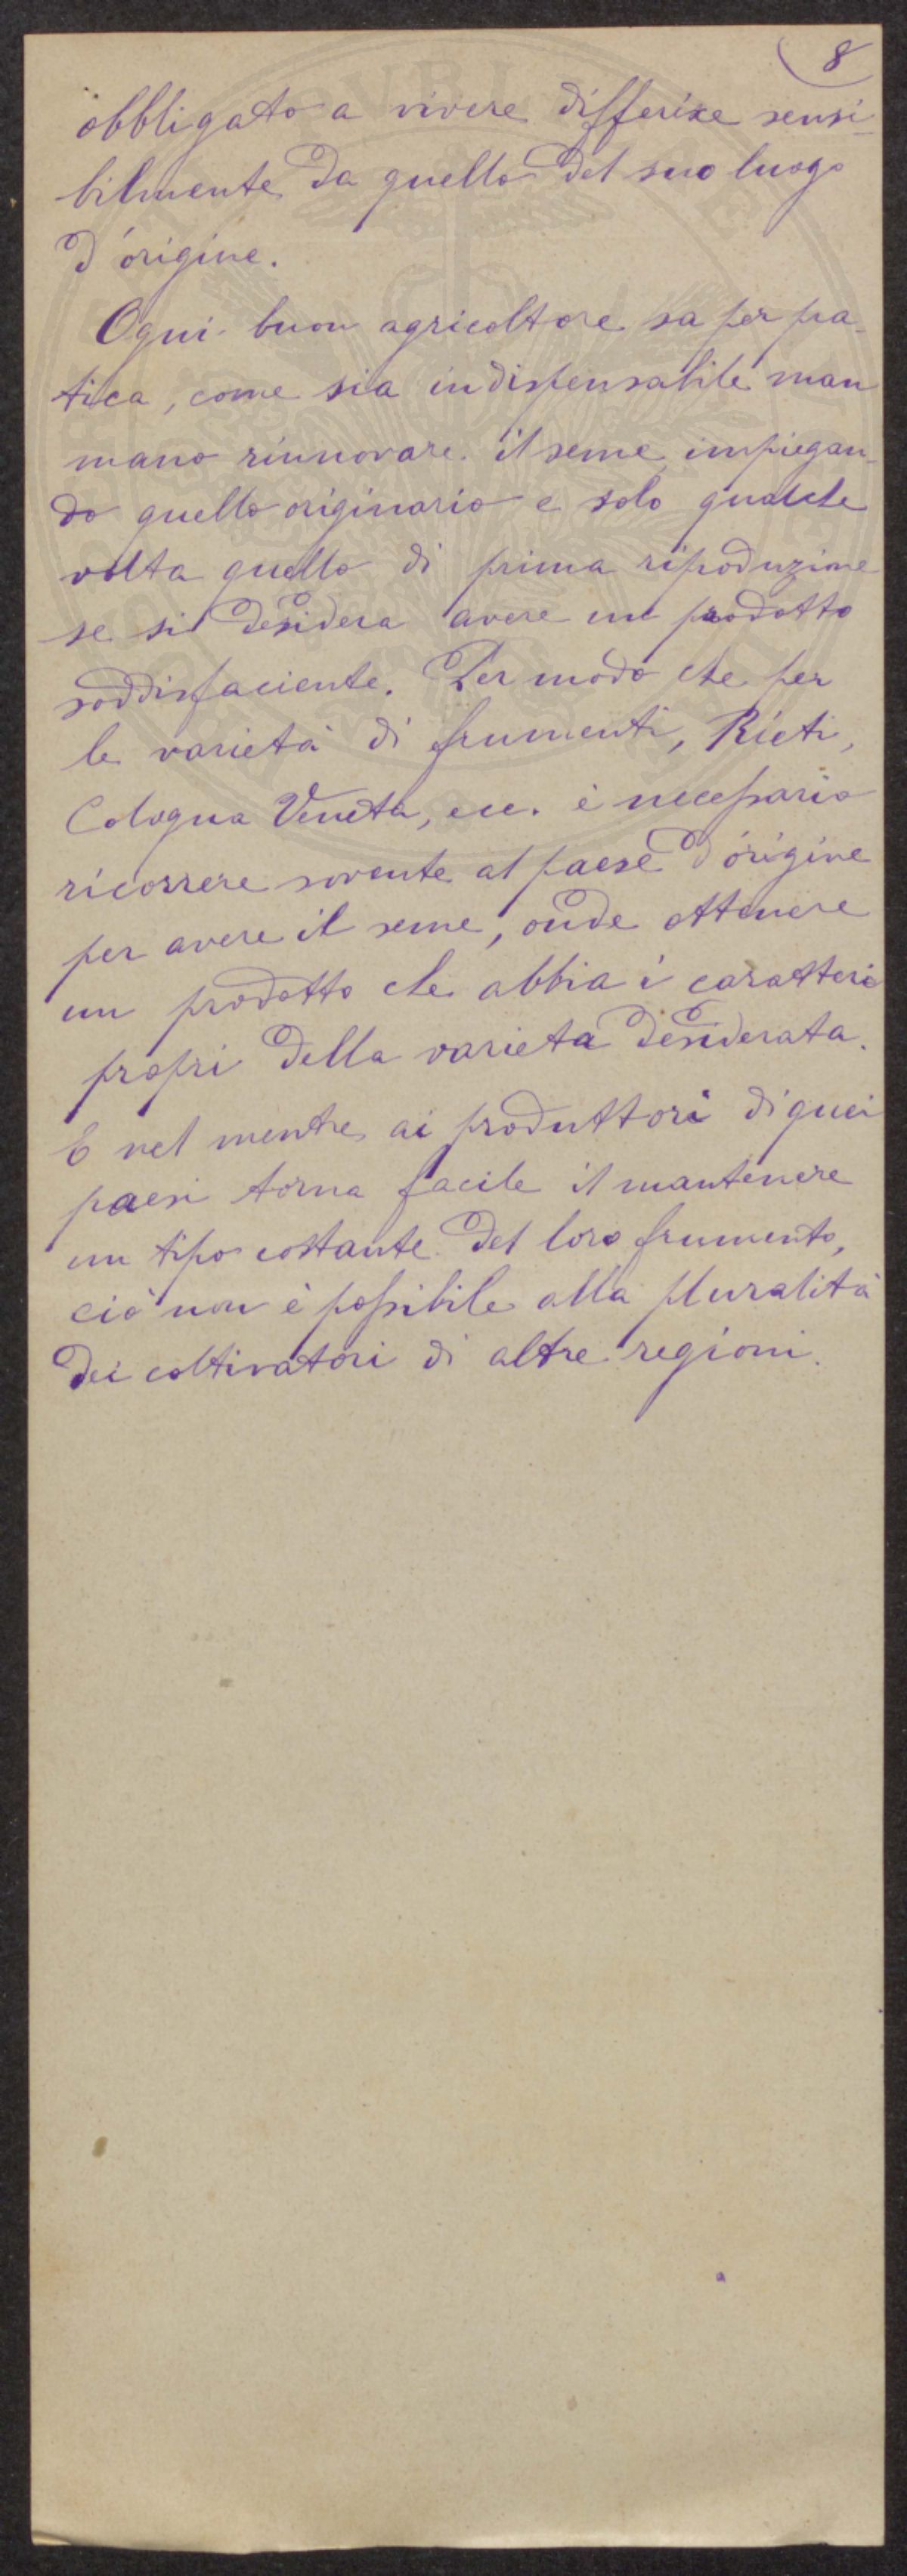 8
obbligato a vivere differisce sensi-
bilmente da quello del suo luogo
d'origine.
Ogni buon agricoltore sa per pra-
tica, come sia indispensabile man
mano rinnovare il seme impiegan-
do quello originario e solo qualche
volta quello di prima riproduzione
se si desidera avere un prodotto
soddisfaciente. Per modo che per
le varietà di frumenti, Rieti,
Cologna Veneta, ecc. è necessario
ricorrere sovente al paese d'origine
per avere il seme, onde ottenere
un prodotto che abbia i caratteri
propri della varietà desiderata.
E nel mentre ai produttori di quei
paesi torna facile il mantenere
un tipo costante del loro frumento,
ciò non è possibile alla pluralità
dei coltivatori di altre regioni.